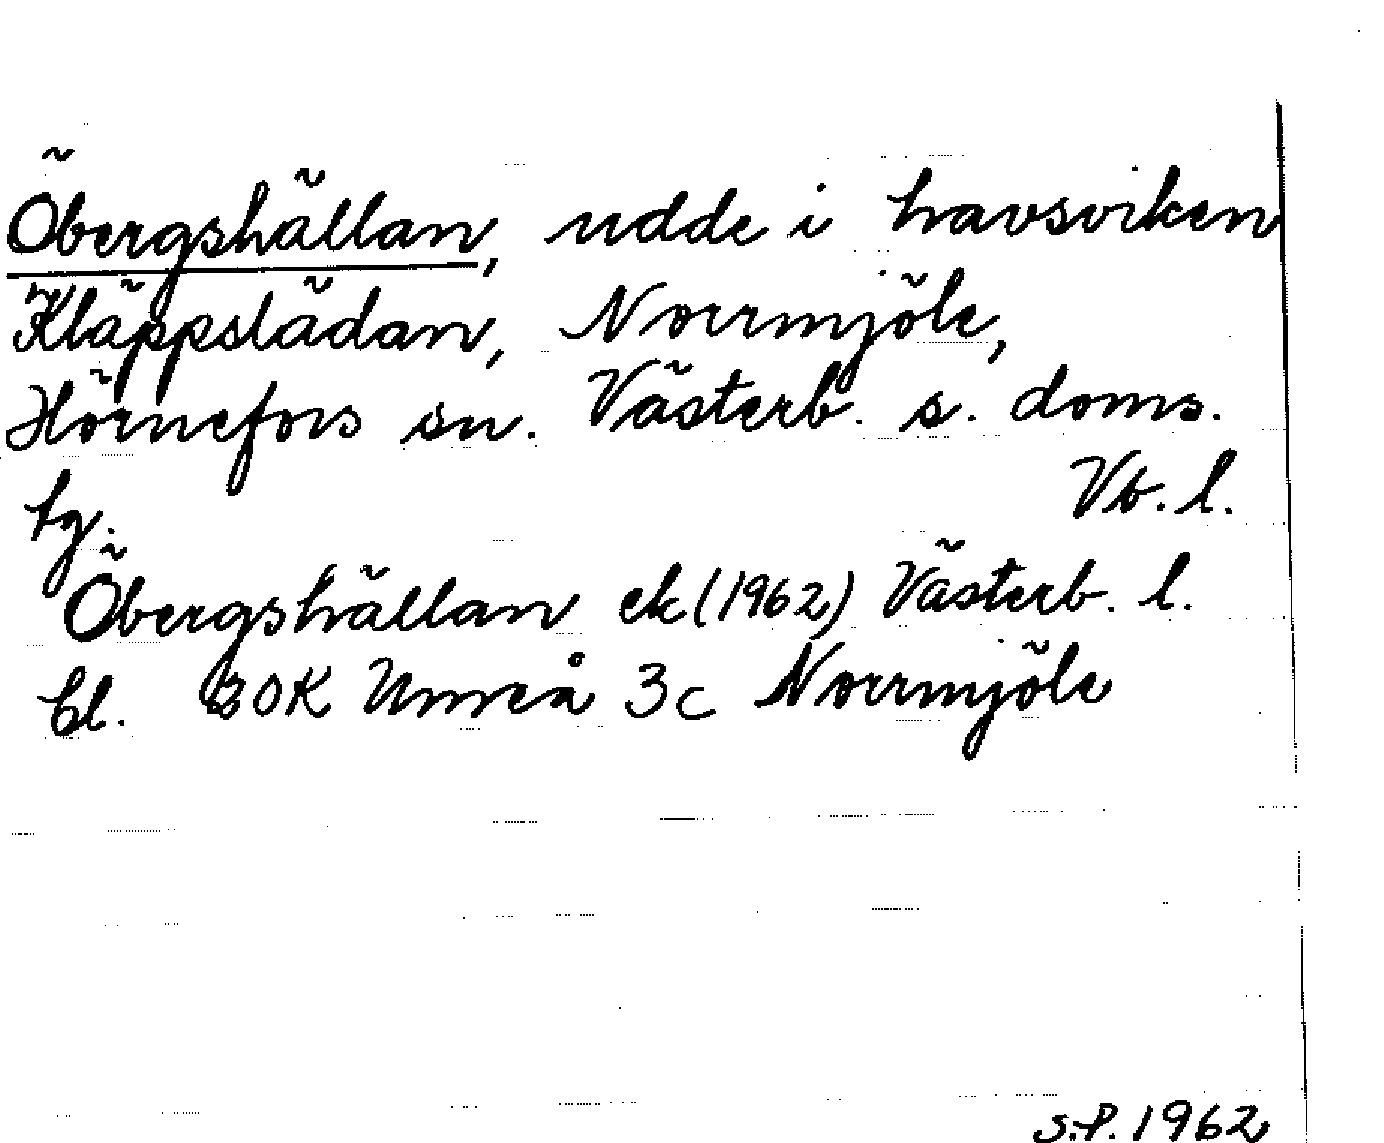 Öbergshällan, udde i havsviken
Kläppslädan, Norrmjöle,
Hörnefors sn. Västerb. s. doms.
tg. Vb. l.
Öbergshällan ek (1962) Västerb. l.
bl. 20K Umeå 3c Norrmjöle
S.P. 1962